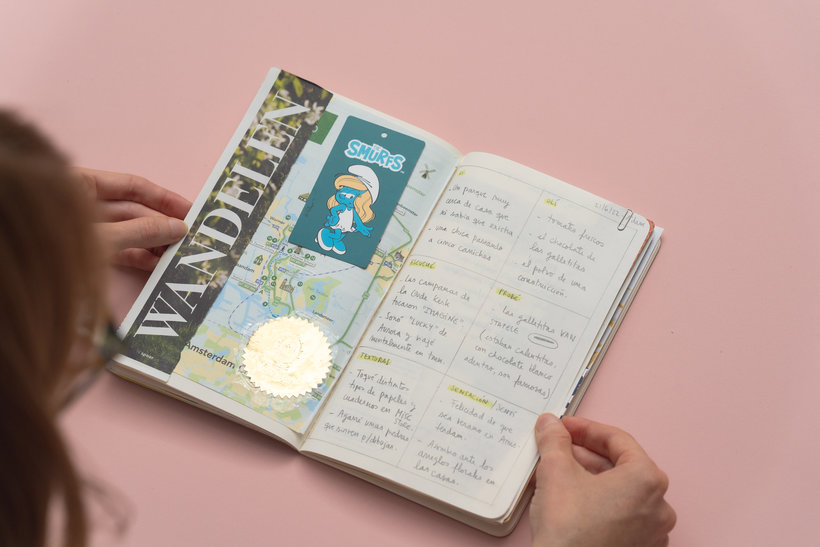 WANDELEN
THE
SMURFS
Amsterdam
VI
- Un parque muy
cerca de casa que
ni sabía que existía
- una chica paseando
a cinco caniches
ESCUCHÉ
- Las campanas de
la Oude Kerk
tocaron "IMAGINE"
- Sonó "LUCKY" de
Aurora y viajé
mentalmente en tren.
TEXTURAS
- Toqué distintos
tipos de papeles y
cuadernos en MISC
STORE
- Agarré unas piedras
que sirven p/dibujar.
OLÍ
21/6/22
- tomates frescos
- el chocolate de
las galletitas
- el polvo de una
construcción.
PROBÉ
- las galletitas VAN
STAPELE
(estaban calentitas,
con chocolate blanco
adentro, son famosas)
SENSACIÓN / SENTÍ
- Felicidad de que
sea verano en Ams-
terdam.
- Asombro ante los
arreglos florales en
las casas.